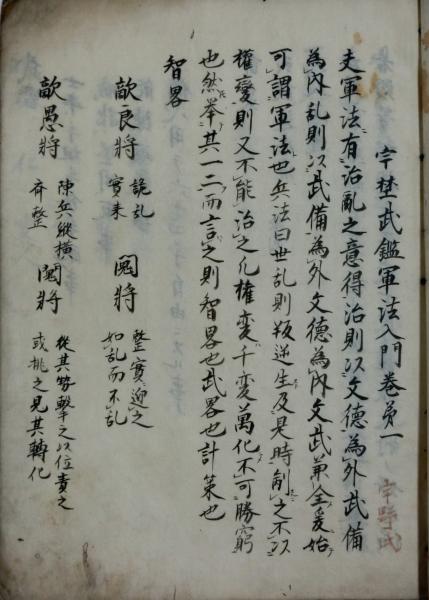 宇埜武鑑軍法入門巻第一
夫軍法有治亂之意得治則以文德為外武備
為内乱則以武備為外文德為内文武兼全爰始
可謂軍法也兵法曰世乱則叛逆生及是時制之不以
權變則又不能治之凡權変千変萬化不可勝窮
也然挙其一二而言之則智畧也武畧也計策也
智畧
敵良將 詭乱 實来 闘將 整實迎之 如乱而不乱
敵愚將 陳兵縱横 斉整 闘將 從其勞撃之以位責之 或挑之見其轉化